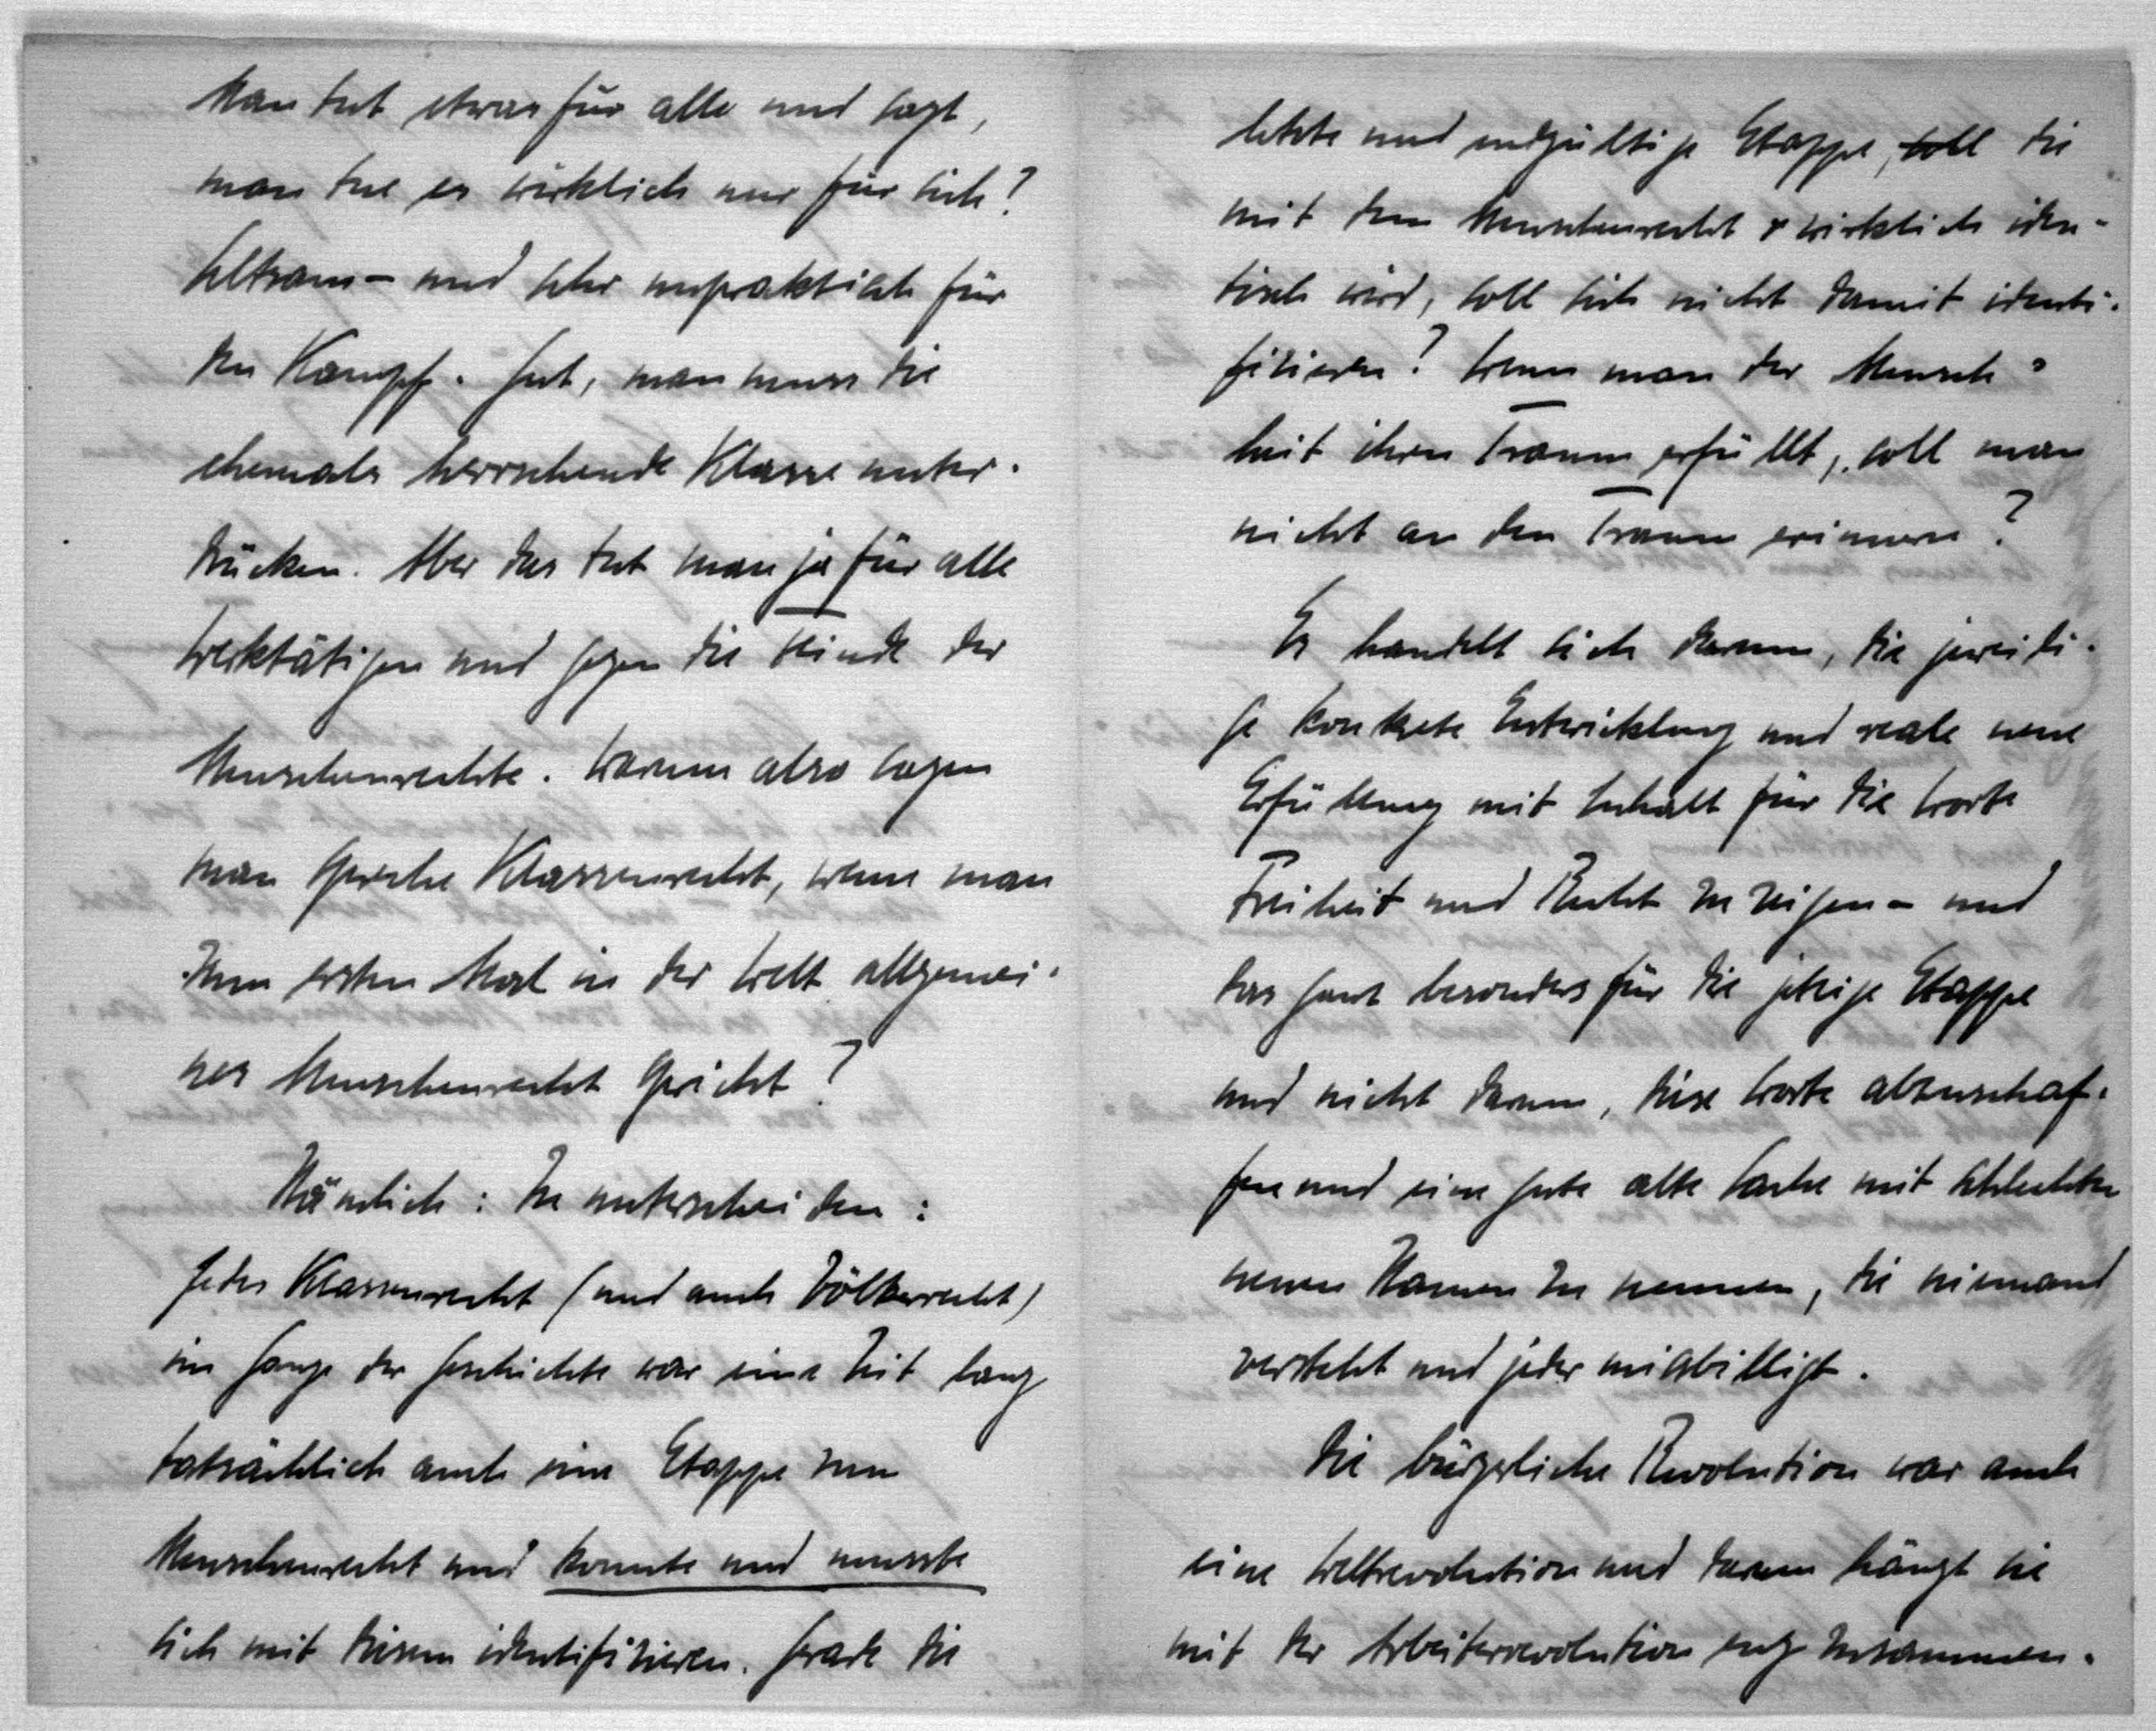 Man tut etwas für alle und sagt,
man tue es wirklich nur für sich?
Seltsam – und sehr unpraktisch für
den Kampf. Gut, man muss die
ehemals herrschende Klasse unter-
drücken. Aber das tut man ja für alle
Werktätigen und gegen die Feinde der
Menschenrechte. Warum also sagen
man spreche Klassenrecht, wenn man
zum ersten Mal in der Welt allgemei-
nes Menschenrecht spricht?
Nämlich: Zu unterscheiden:
Jedes Klassenrecht (und auch Völkerrecht)
im Gange der Geschichte war eine Zeit lang
tatsächlich auch eine Etappe zum
Menschenrecht und konnte und musste
sich mit diesem identifizieren. Grade die
letzte und endgültige Etappe, soll die
mit dem Menschenrecht wirklich iden-
tisch wird, soll sich nicht damit identi-
fizieren? Wenn man der Mensch-
heit ihren Traum erfüllt, soll man
nicht an den Traum erinnern?
Es handelt sich darum, die jeweili-
ge konkrete Entwicklung und reale neue
Erfüllung mit Inhalt für die Worte
Freiheit und Recht zu zeigen – und
das ganz besonders für die jetzige Etappe
und nicht darum, diese Worte abzuschaf-
fen und eine gute alte Sache mit schlechten
neuen Namen zu nennen, die niemand
versteht und jeder misbilligt.
Die bürgerliche Revolution war auch
eine Weltrevolution und darum hängt sie
mit der Arbeiterrevolution eng zusammen.